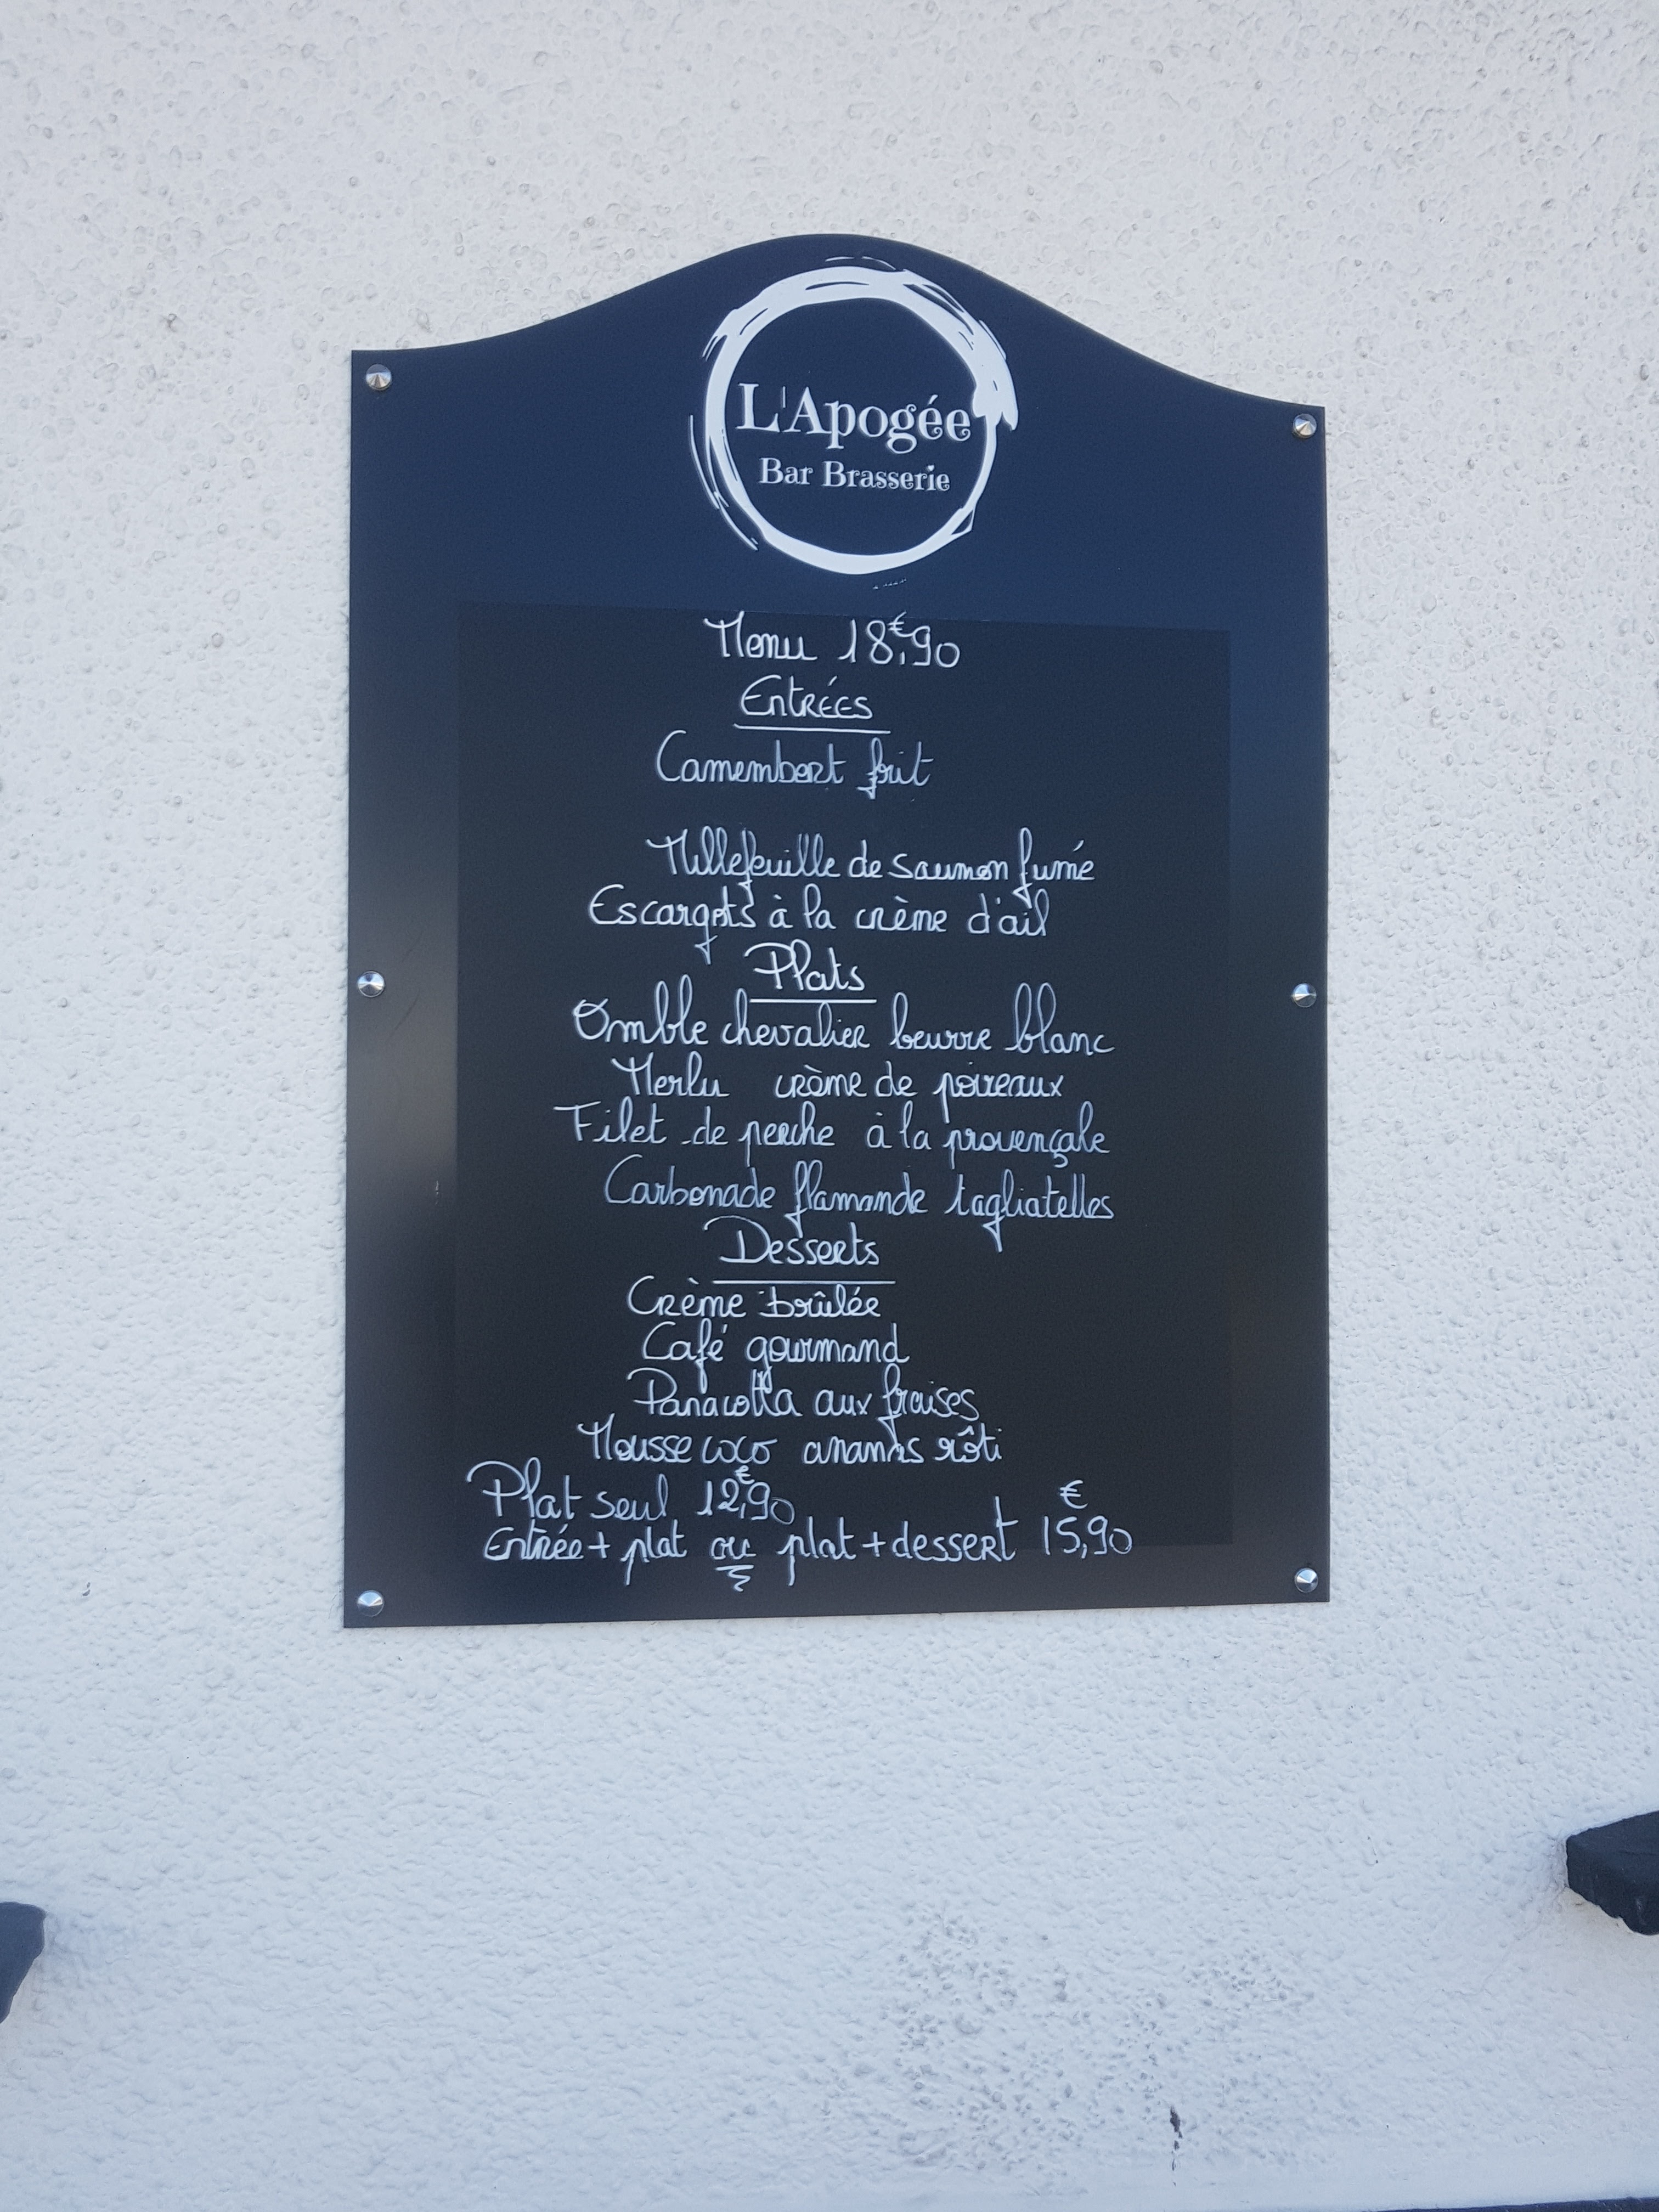 L'Apogée
Bar Brasserie
Menu 18€,90
Entrées
Camembert frit
Millefeuille de saumon fumé
Escargots à la crème d'ail
Plats
Omble chevalier beurre blanc
Merlu crème de poireaux
Filet de perche à la provençale
Carbonade flamande tagliatelles
Desserts
Crème brûlée
Café gourmand
Panacotta aux fraises
Mousse coco ananas rôti
Plat seul 12€,90
Entrée + plat ou plat + dessert 15€,90